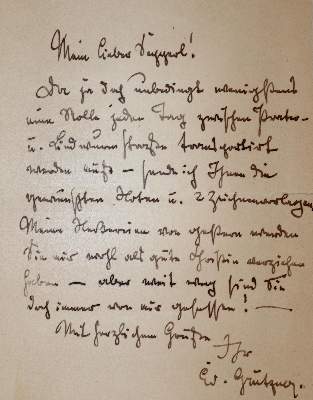 Mein lieber Sepperl!
Da ja doch unbedingt wenigstens
eine Rolle jeden Tag zwischen Prater-
u. Lindwurmstraße transportiert
werden muß – sende ich Ihnen die
gewünschten Noten u. 2 Zeichenvorlagen
Meine von gestern werden
Sie mir wohl als gute Christin verziehen
haben – aber weit weg sind Sie
doch immer von mir gesessen! —
Mit herzlichem Gruße
Ihr
Ed. Grützner.